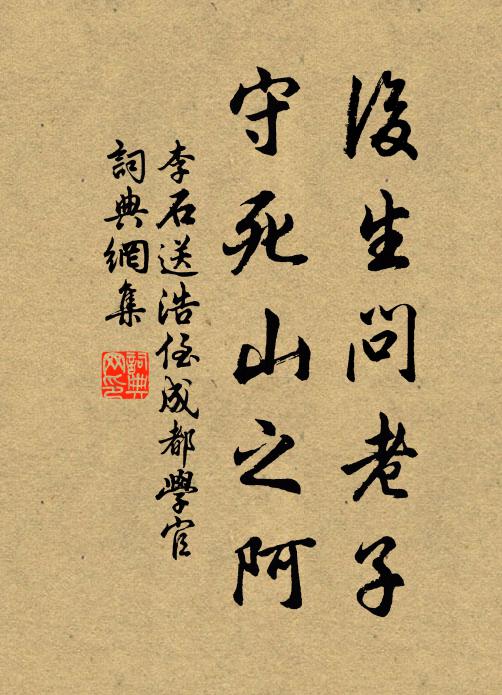 後生問老子
守死山之阿
李石送浩侄成都學官
詞典網集
詞典網印